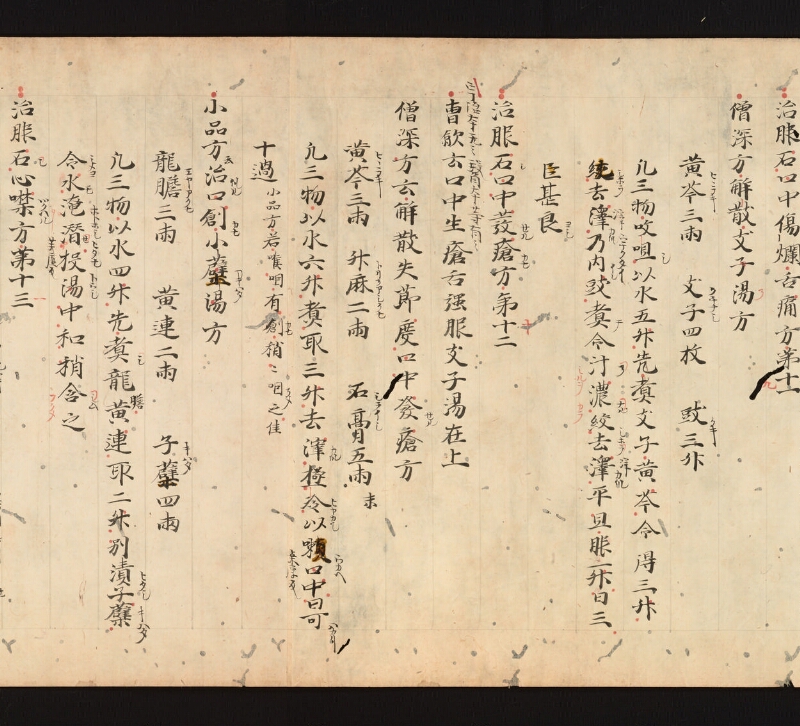 治服石口中傷爛舌痛方第十一
僧深方解散支子湯方
黃芩三兩 支子四枚 豉三升
凡三物㕮咀以水五升先煮支子黃芩令得三升
絞去滓乃內豉煮令汁濃絞去滓平旦服一升日三
甚良
治服石口中發瘡方第十二
曹歙云口中生瘡舌强服支子湯在上
僧深方云解散失節度口中發瘡方
黃芩三兩 升麻二兩 石膏五兩末
凡三物以水六升煮取三升去滓極冷以嗽口中日可
十過小品方若喉咽有創稍〻咽之佳
小品方云治口創小蘗湯方
龍膽三兩 黃連二兩 子蘗四兩
凡三物以水四升先煮龍膽黃連取二升別漬子蘗
令水淹潛投湯中和稍含之
治服石心噤方第十三